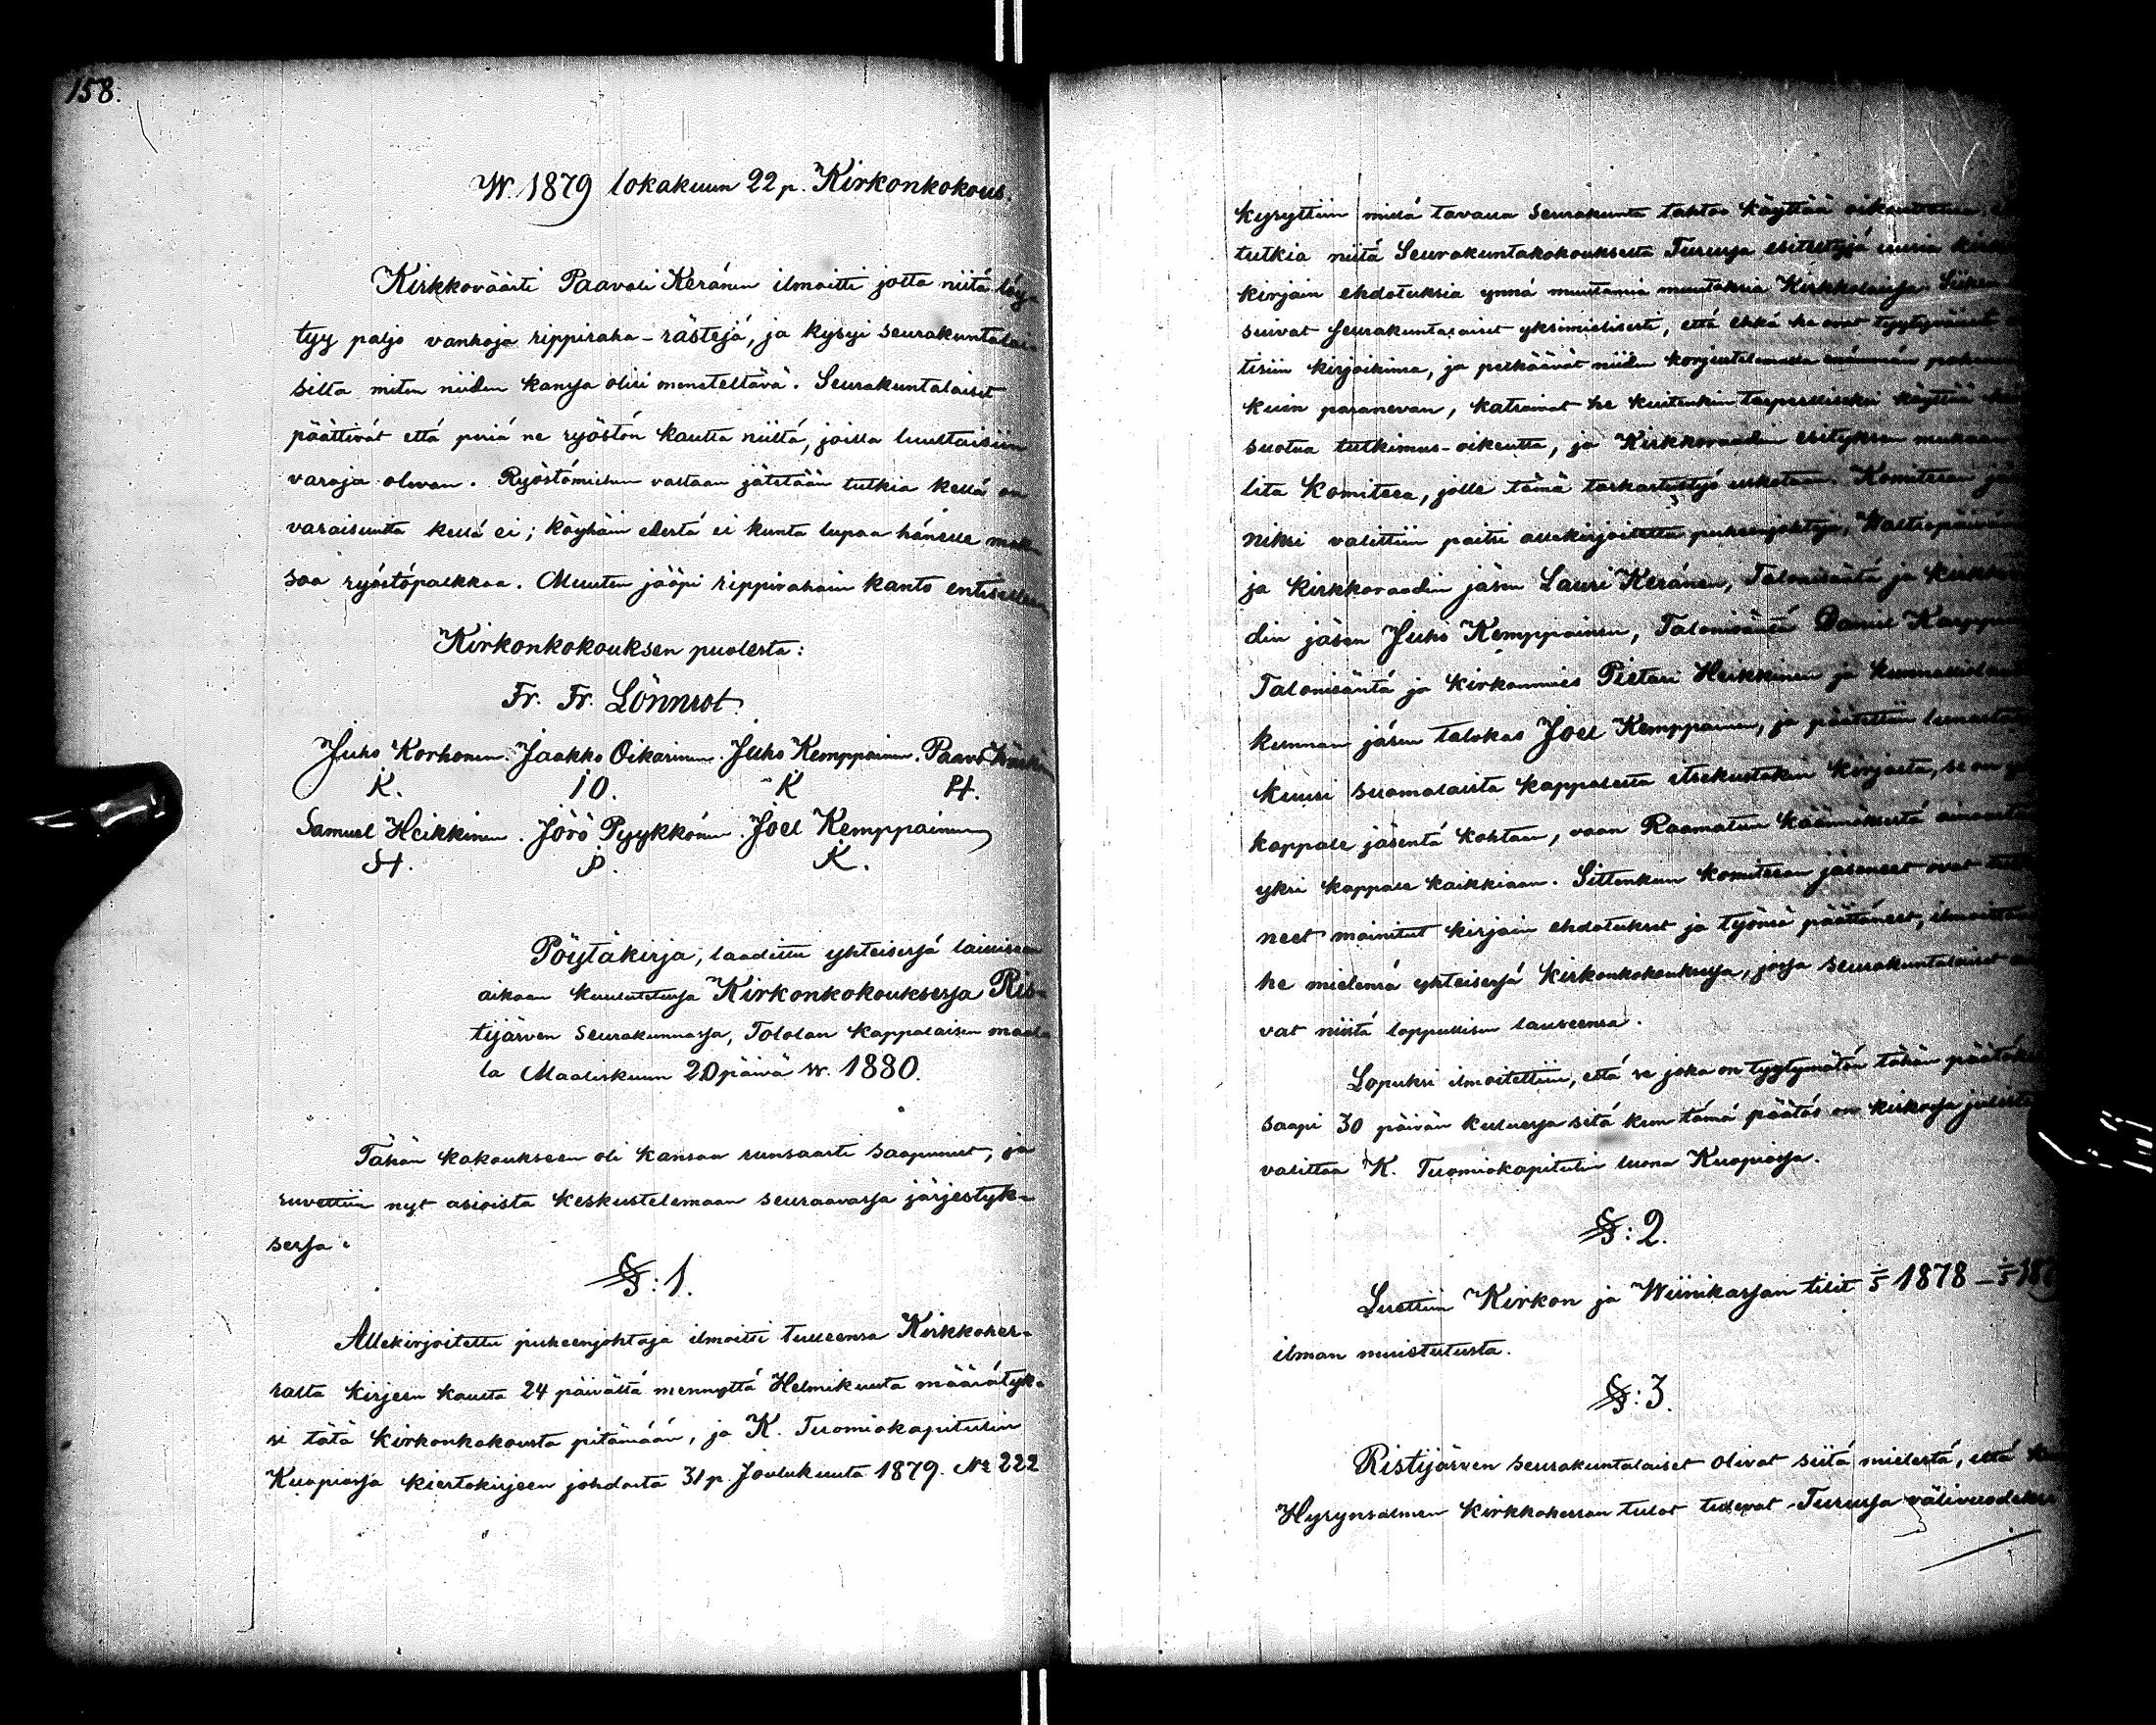 158.
W. 1879 lokakuun 22 p. Kirkonkokous.
Kirkkoväärti Paavali Keränen ilmoitti jotta niitä löy-
tyy paljo vanhoja rippiraha-rästejä, ja kysyi seurakuntalai-
silta miten niiden kanssa olisi meneteltävä. Seurakuntalaiset
päättivät että periä ne ryöstön kautta niiltä, joilla luultaisiin
varoja olevan. Ryöstömiehen valtaan jätetään tutkia kellä on
varaisuutta kellä ei; köyhäin edestä ei kunta lupaa hänelle mak-
saa ryöstöpalkkaa. Muuten jääpi rippirahain kanto entisellään
Kirkonkokouksen puolesta:
Fr. Fr. Lönnrot.
Juho Korhonen. Jaakko Oikarinen. Juho Kemppainen. Paavo
K. I O. K H.
Samuel Heikkinen. Jörö Pyykkönen. Joel Kemppainen
H. P. K.
Pöytäkirja, laadittu yhteisessä laillisen
aikaan kuulutetussa Kirkonkokouksessa Ris-
tijärven seurakunnassa, Tololan kappalaisen maalla
la Maaliskuun 20 päivä w. 1880.
Tähän kokoukseen oli kansaa runsaasti saapunut, ja
ruvettiin nyt asioista keskustelemaan seuraavassa järjestyk-
sessä:
§: 1.
Allekirjoitettu puheenjohtaja ilmoitti tulleensa Kirkkoher-
ralta kirjeen kautta 24 päivältä mennyttä Helmikuuta määrätyk-
si tätä kirkonkokousta pitämään, ja K. Tuomiokapitulin
Kuopiossa kiertokirjeen johdosta 31 p. Joulukuuta 1879. No 222
kysyttiin millä tavalla seurakunta tahtoo käyttää oikeuttansa,
tutkia niitä Seurakuntakokoukselta Turussa esitettyjä uusia kirkko
kirjain ehdotuksia ynnä muutamia muutoksia Kirkkolaissa. Siihen
suivat seurakuntalaiset yksimielisesti, että ehkä he ovat tyytyväiset
tisiin kirjoihinsa, ja pelkäävät niiden korjuutelemalla enemmän pahenevan
kuin paranevan, katsoivat he kuitenkin tarpeelliseksi käyttää
suotua tutkimus-oikeutta, ja Kirkkoraadin esityksen mukaan
lita Komitea, jolle tämä tarkastustyö uskotaan. Komitean jä
niksi valittiin paitsi allekirjoitettu puheenjohtaja, Waltiopäivä
ja kirkkoraadin jäsen Lauri Keränen, Talonisäntä ja kirkkoraa
din jäsen Juho Kemppainen, Talonisäntä Daniel Karppinen
Talonisäntä ja kirkonmies Pietari Heikkinen ja kunnallislauta
kunnan jäsen talokas Joel Kemppainen, ja päätettiin lunastaa
kuusi suomalaista kappaletta itsekustakin kirjasta, se on
kappale jäsentä kohtaan, vaan Raamatun käännöksestä ainoastaan
yksi kappale kaikkiaan. Sittenkun komitean jäsenet ovat
neet mainitut kirjain ehdotukset ja työnsä päättäneet, ilmoittavat
he mielensä yhteisessä kirkonkokouksessa, jossa seurakuntalaiset
vat niistä loppullisen lauseensa.
Lopuksi ilmoitettiin, että se joka on tyytymätön tähän päätökseen
saapi 30 päivän kuluessa sitä kun tämä päätös on kirkossa julistettu
valittaa K. Tuomiokapitulin luona Kuopiossa.
§: 2.
Luettiin Kirkon ja Wiinikassan tilit 1/5 1878 – 1/5 187
ilman muistutusta.
§: 3.
Ristijärven seurakuntalaiset olivat siitä mielestä, että
Hyrynsalmen kirkkoherran tulot tulevat Turussa välivuodeksi